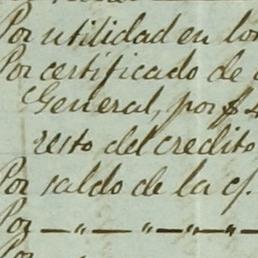 Por utilidad en los
Por certificado de
General, por $4
resto del credito
Por saldo de la c/.
Por — " — " — " —
Por